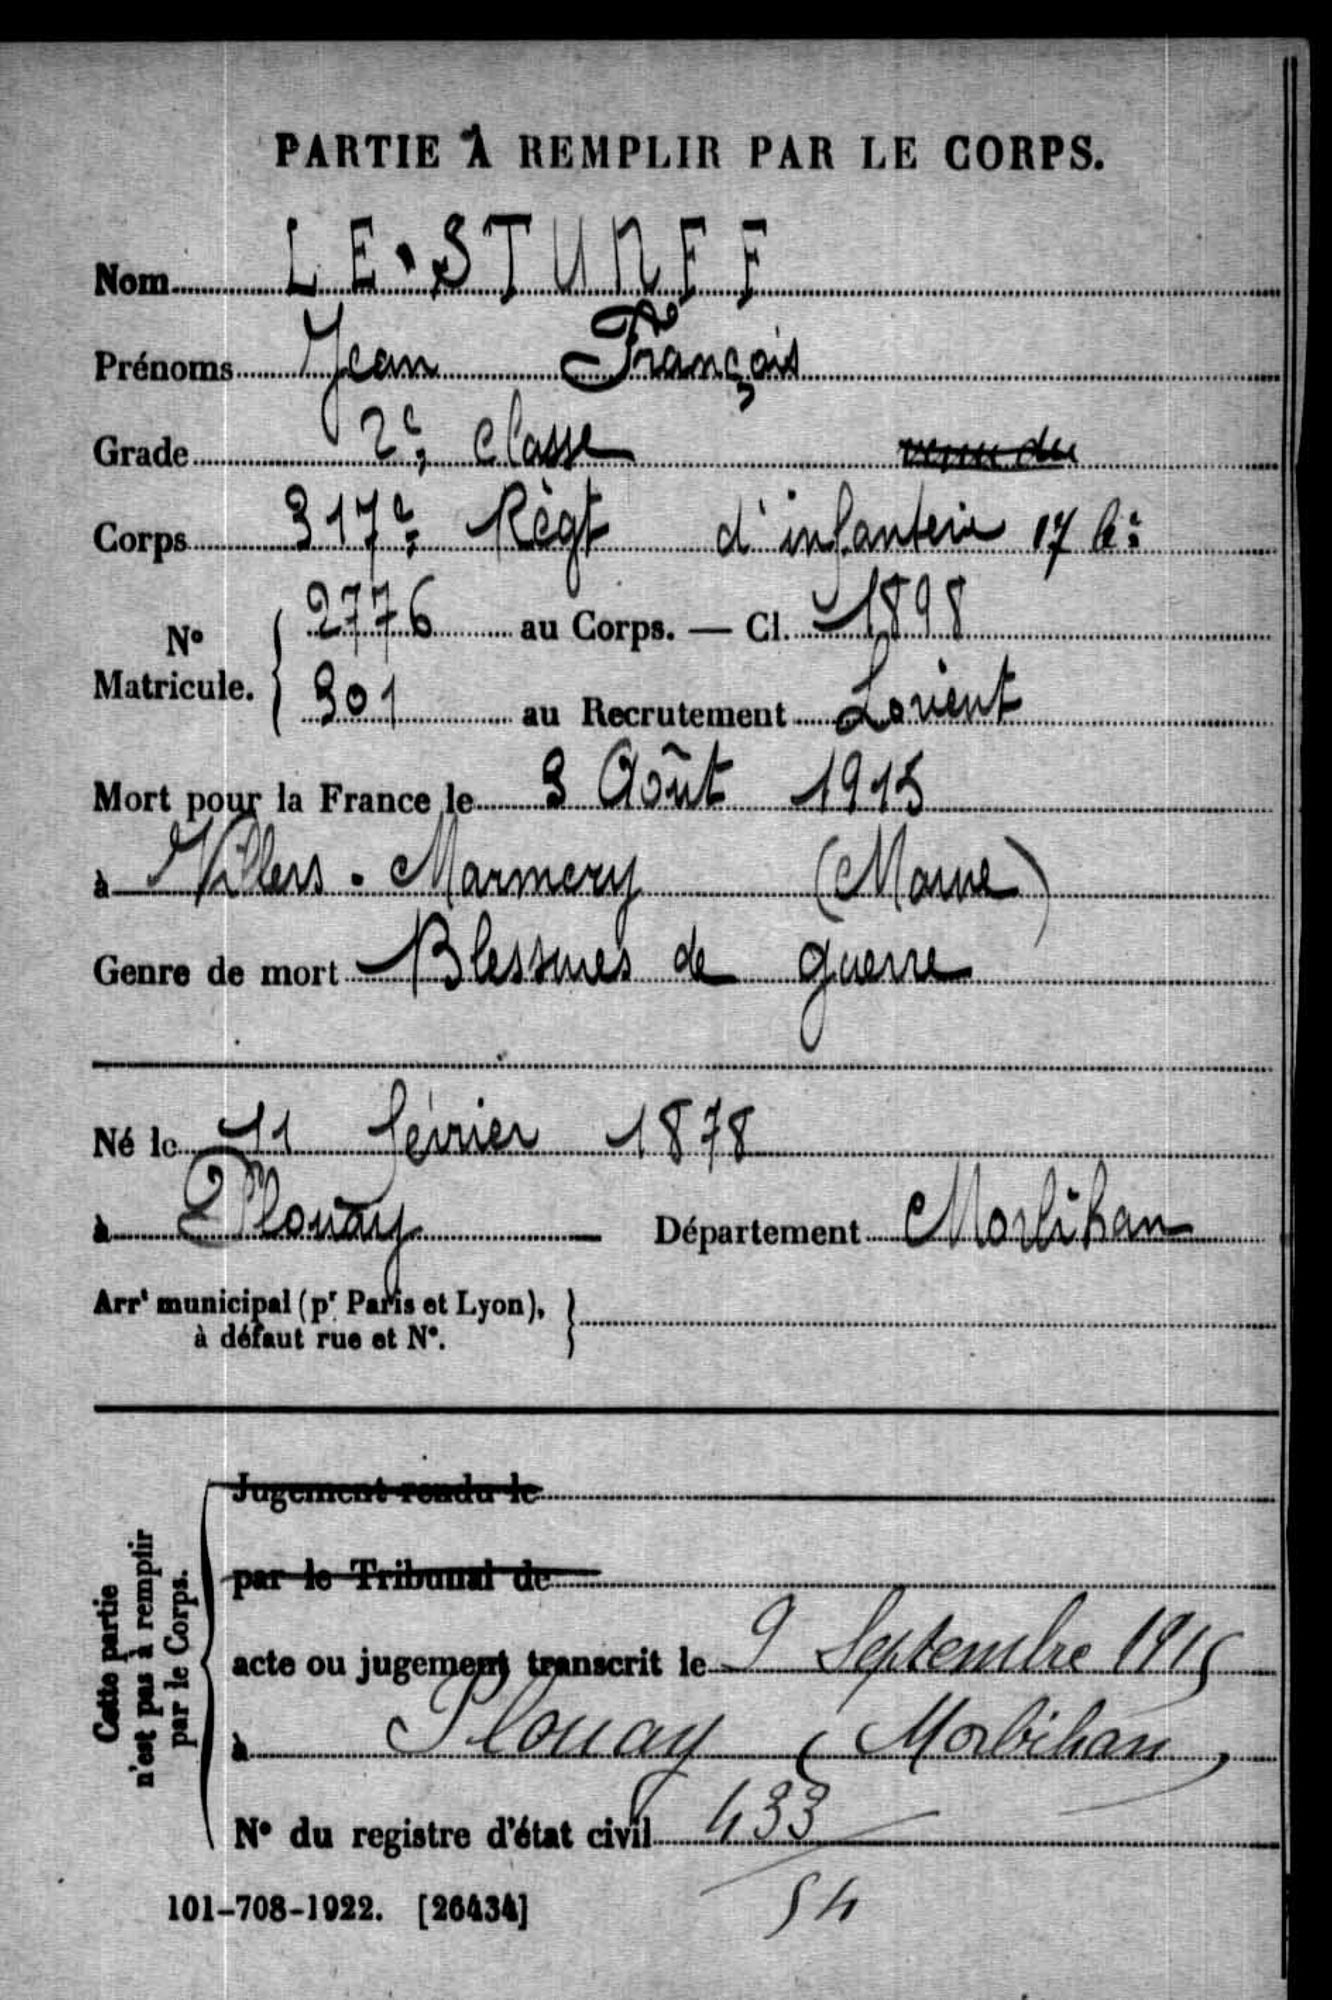 PARTIE À REMPLIR PAR LE CORPS.
Nom LE STUNFF
Prénoms Jean François
Grade 2e classe
Corps 317e Règt d'infanterie 17 Cie
N° Matricule. 2776 au Corps. — Cl. 1898
301 au Recrutement Lorient
Mort pour la France le 3 Août 1915
à Villers-Marmery (Marne)
Genre de mort Blessures de guerre
Né le 11 février 1878
à Plouay Département Morbihan
Arrt municipal (pr Paris et Lyon),
à défaut rue et N°.
Cette partie
n'est pas à remplir
par le Corps.
Jugement rendu le
par le Tribunal de
acte ou jugement transcrit le 9 Septembre 1915
à Plouay (Morbihan)
N° du registre d'état civil 433
54
101-708-1922. [26434]